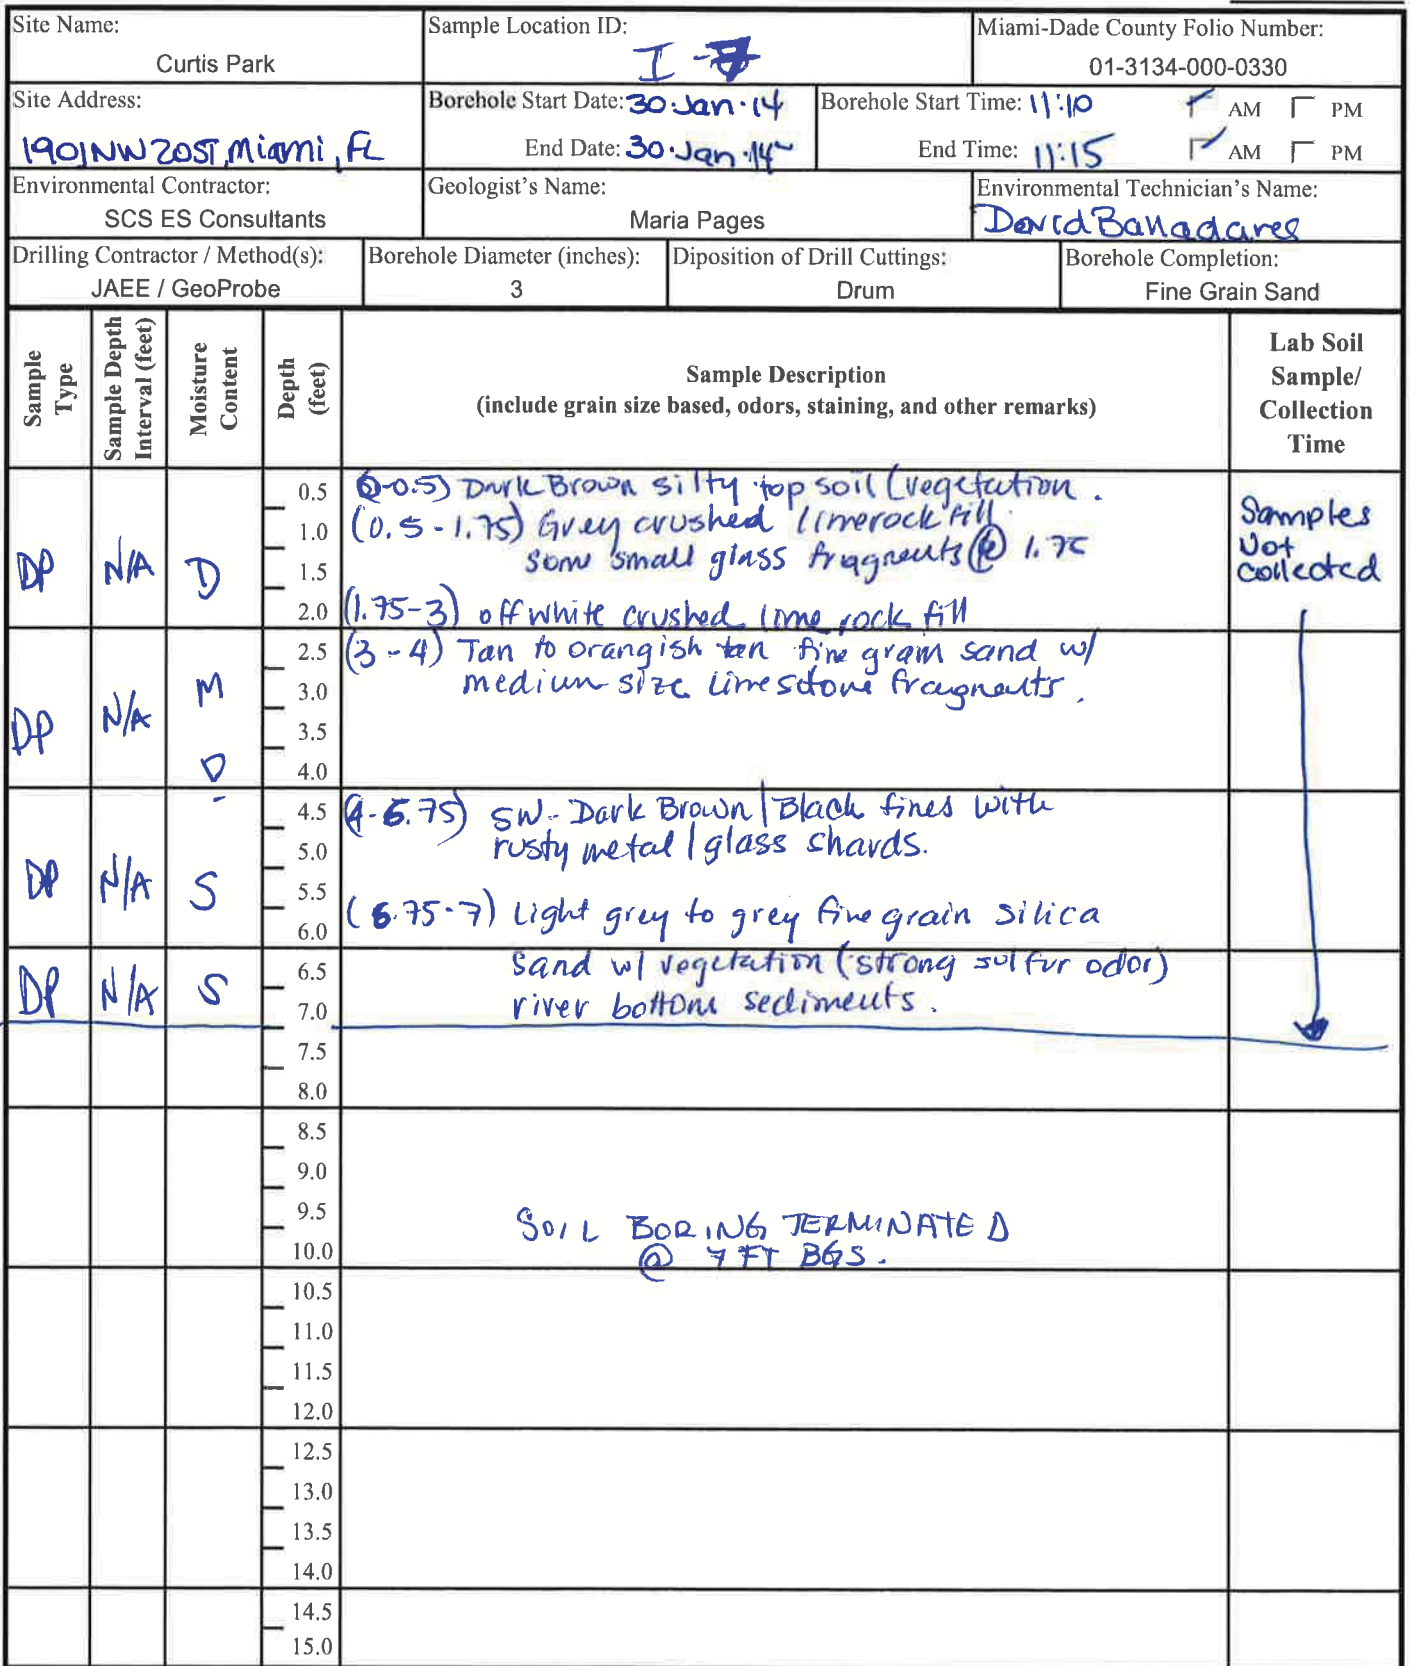 Site Name:
Curtis Park
Sample Location ID:
I-7
Miami-Dade County Folio Number:
01-3134-000-0330
Site Address:
1901 NW 20ST, Miami, FL
Borehole Start Date: 30.Jan.14
End Date: 30.Jan.14
Borehole Start Time: 11:10 AM PM
End Time: 11:15 AM PM
Environmental Contractor:
SCS ES Consultants
Geologist's Name:
Maria Pages
Environmental Technician's Name:
David Balladares
Drilling Contractor / Method(s):
JAEE / GeoProbe
Borehole Diameter (inches):
3
Diposition of Drill Cuttings:
Drum
Borehole Completion:
Fine Grain Sand
Sample Type
Sample Depth Interval (feet)
Moisture Content
Depth (feet)
Sample Description
(include grain size based, odors, staining, and other remarks)
Lab Soil
Sample/
Collection
Time
0.5 (0-0.5) Dark Brown silty top soil (vegetation.
1.0 (0.5-1.75) Grey crushed limerock fill.
some small glass fragments @ 1.75
DP N/A D 1.5
2.0 (1.75-3) off white crushed lime rock fill
Samples
Not
collected
2.5 (3-4) Tan to orangish tan fine grain sand w/
medium size limestone fragments.
M 3.0
DP N/A 3.5
D 4.0
4.5 (4-6.75) SW- Dark Brown/Black fines with
5.0 rusty metal/glass shards.
DP N/A S 5.5
6.0 (6.75-7) Light grey to grey fine grain silica
DP N/A S 6.5 Sand w/ vegetation (strong sulfur odor)
7.0 river bottom sediments.
7.5
8.0
8.5
9.0
9.5 SOIL BORING TERMINATED
10.0 @ 7 FT BGS.
10.5
11.0
11.5
12.0
12.5
13.0
13.5
14.0
14.5
15.0